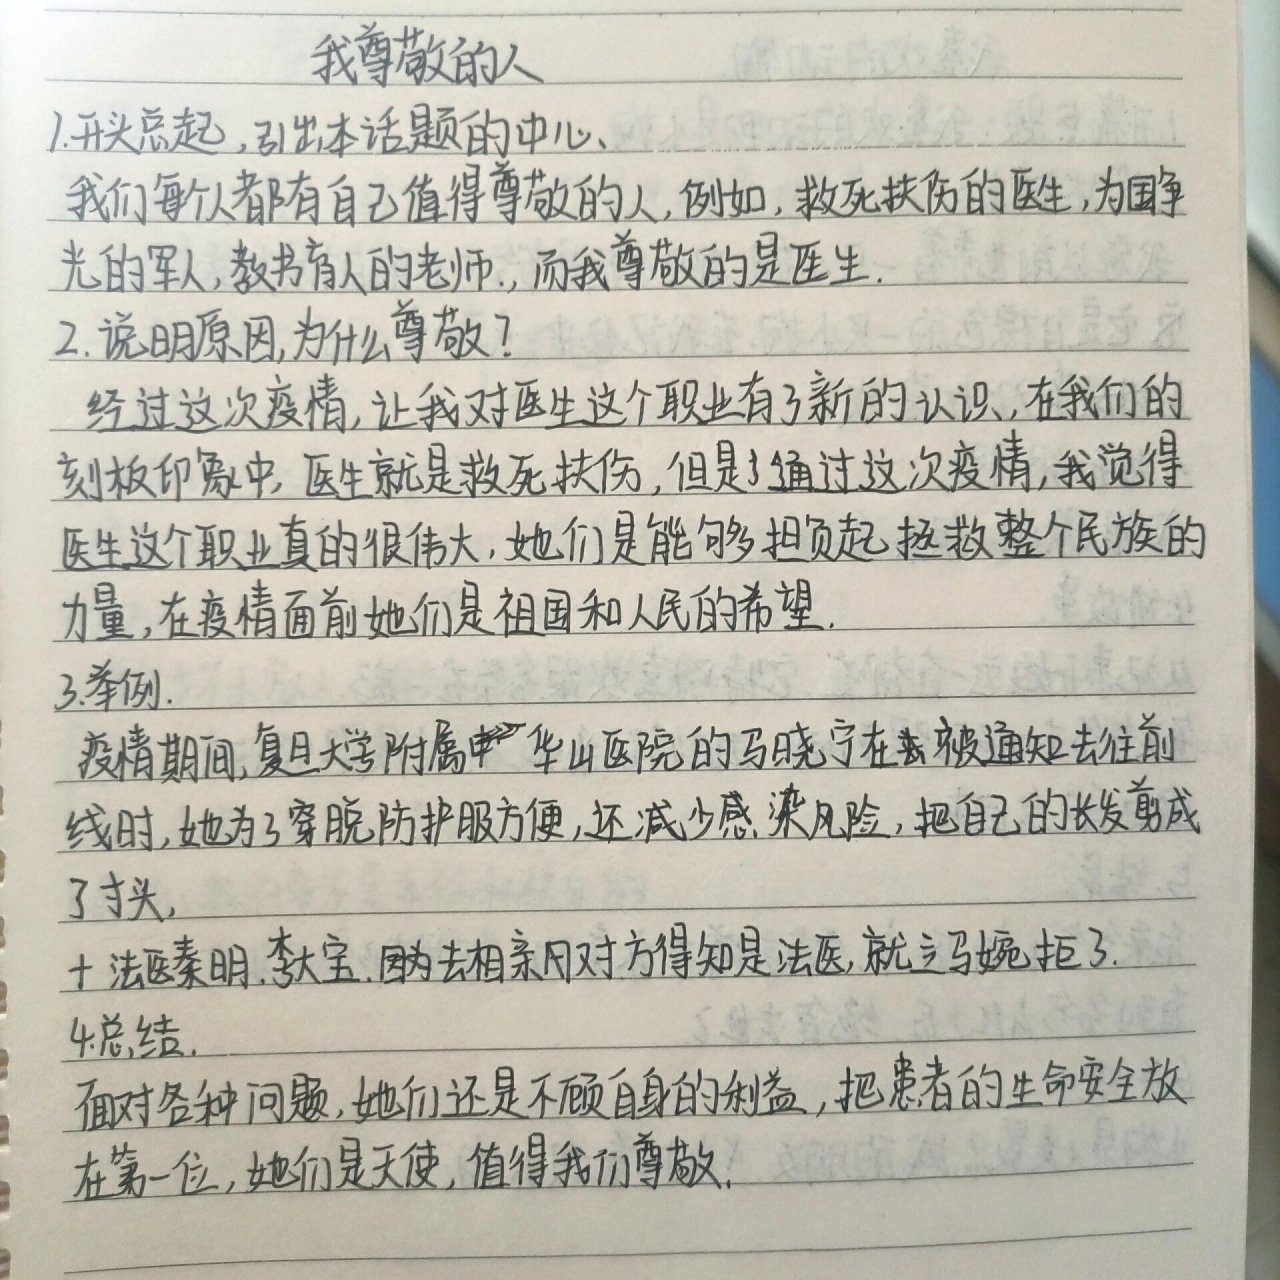 我尊敬的人
1.开头总起,引出本话题的中心、
我们每个人都有自己值得尊敬的人,例如,救死扶伤的医生,为国争
光的军人,教书育人的老师.,而我尊敬的是医生.
2.说明原因,为什么尊敬?
经过这次疫情,让我对医生这个职业有了新的认识、,在我们的
刻板印象中,医生就是救死扶伤,但是了通过这次疫情,我觉得
医生这个职业真的很伟大,她们是能够担负起拯救整个民族的
力量,在疫情面前她们是祖国和人民的希望.
3.举例.
疫情期间,复旦大学附属华山医院的马晓宁在被通知去往前
线时,她为了穿脱防护服方便,还减少感染风险,把自己的长发剪成
了寸头,
十法医秦明.李大宝.因为去相亲因对方得知是法医,就立马婉拒了.
4.总结.
面对各种问题,她们还是不顾自身的利益,把患者的生命安全放
在第一位,她们是天使,值得我们尊敬.